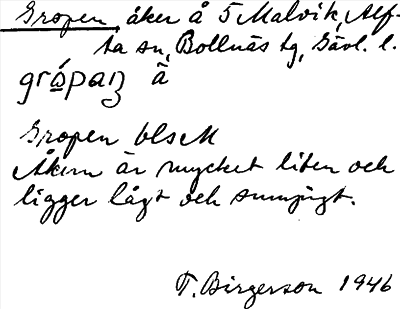 Gropen, åker å 5 Malvik, Alf-
ta sn, Bollnäs tg, Gävl. l.
grópaꞑ ä
Gropen blsM
Åkern är mycket liten och
ligger lågt och sumpigt.
T. Birgerson 1946